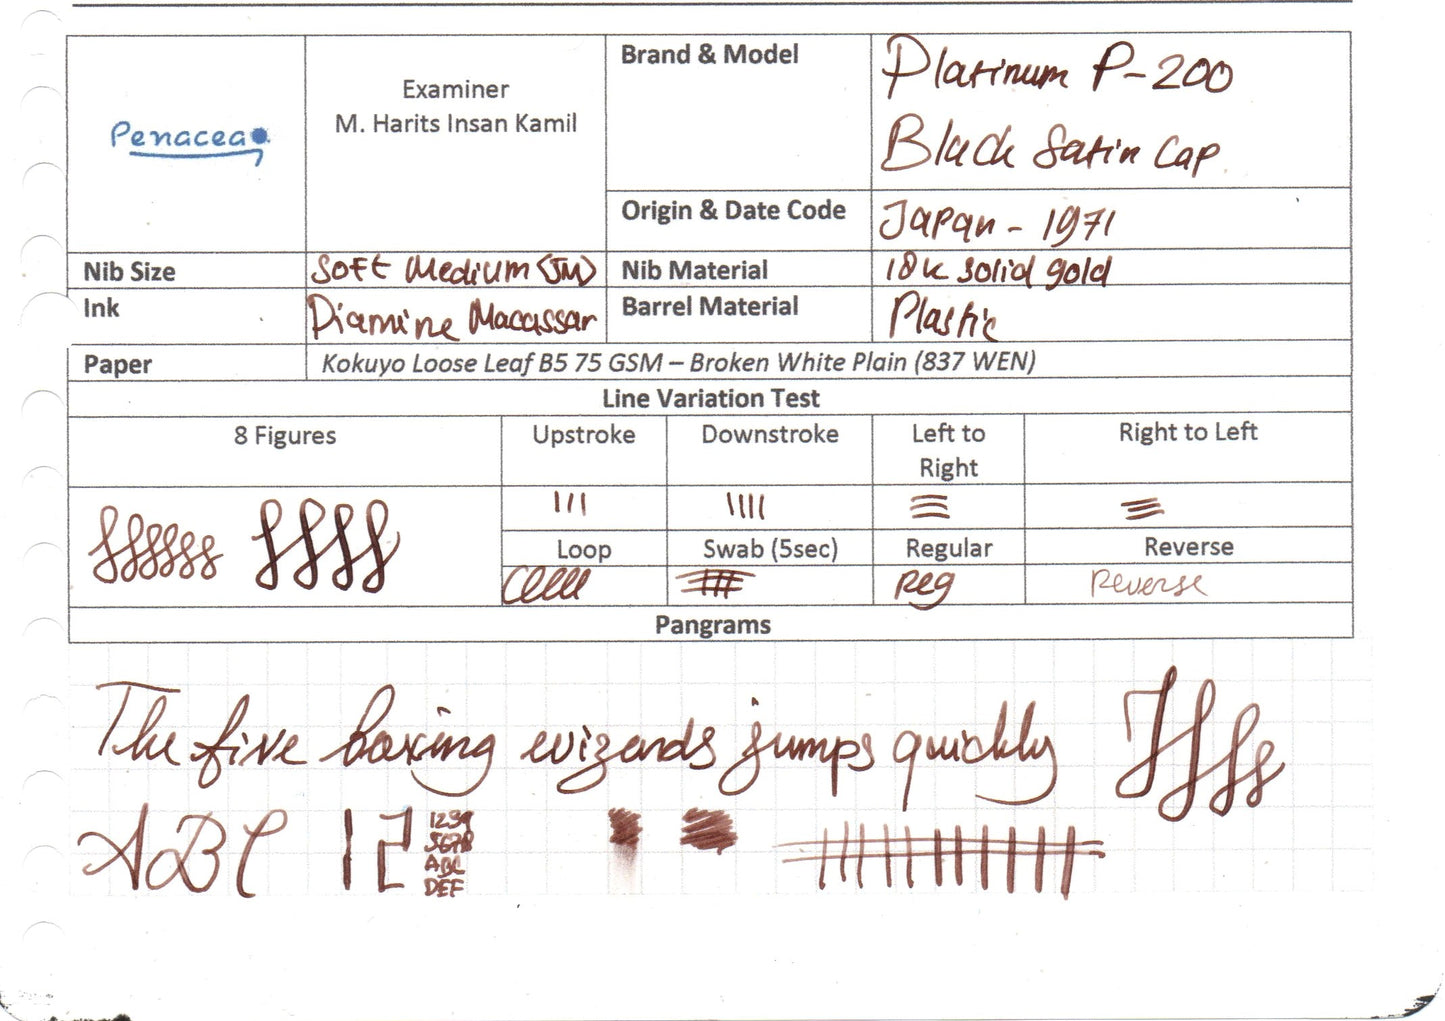 Penacea
Examiner
M. Harits Insan Kamil
Brand & Model
Platinum P-200
Black Satin Cap
Origin & Date Code
Japan - 1971
Nib Size
Soft Medium (SM)
Nib Material
18k solid gold
Ink
Diamine Macassar
Barrel Material
Plastic
Paper
Kokuyo Loose Leaf B5 75 GSM – Broken White Plain (837 WEN)
Line Variation Test
8 Figures
Upstroke
Downstroke
Left to
Right
Right to Left
Loop
Swab (5sec)
Regular
Reverse
Reg
Reverse
Pangrams
The five boxing wizards jumps quickly
ABC 12
1234
5678
ABC
DEF